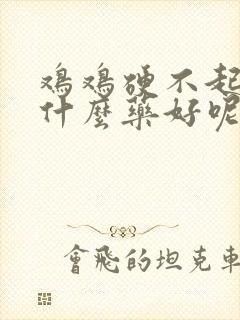 鸡鸡硬不起
什麼药好呢
會飛的坦克車